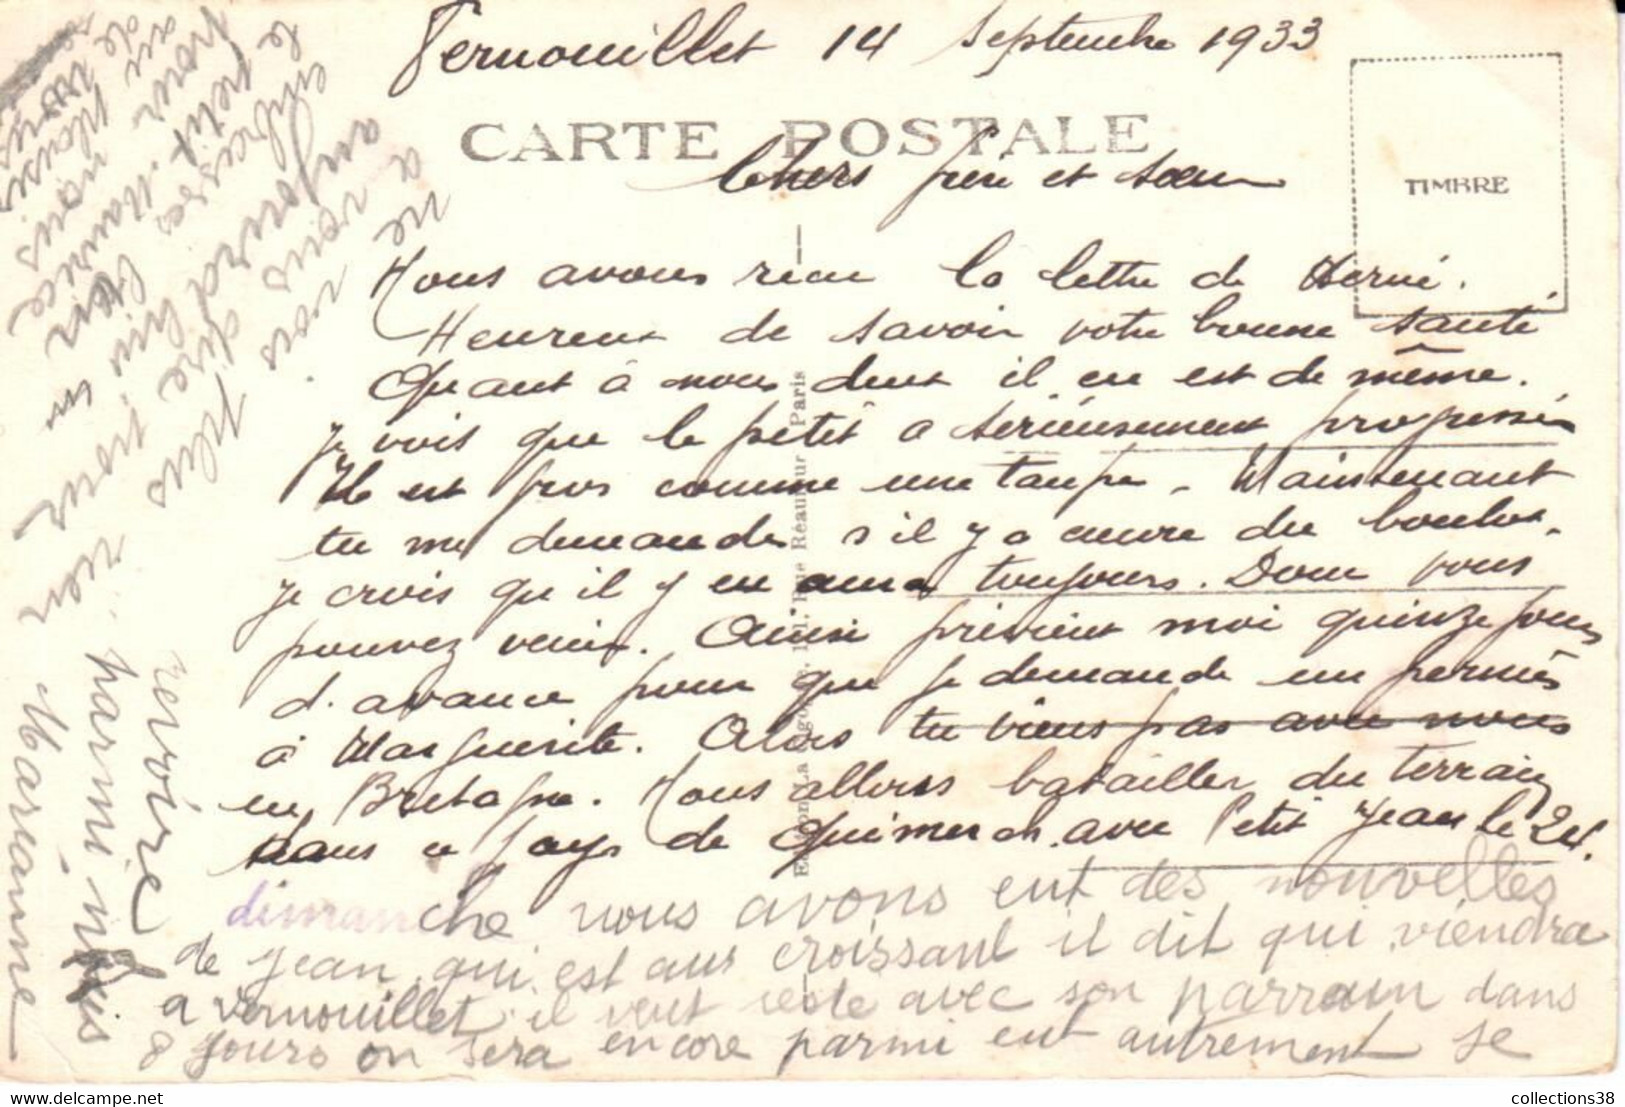 Vernouillet 14 Septembre 1933
CARTE POSTALE
TIMBRE
Chers frère et sœur
Nous avons reçu la lettre de Hervé.
Heureux de savoir votre bonne santé
Quant à nous deux il en est de même.
Je vois que le petit a sérieusement progressé
Il est gros comme une taupe. Maintenant
tu me demandes s'il y a encore du boulot.
Je crois qu'il y en aura toujours. Donc vous
pouvez venir. Ainsi prévient moi quinze jours
d'avance pour que je demande un permis
à Marguerite. Alors tu viens pas avec nous
en Bretagne. Nous allons batailler du terrain
dans ce pays de Quimerch avec Petit Jean le 24.
dimanche nous avons eut des nouvelles
de jean qui est aus croissant il dit qui viendra
a Vernouillet il veut reste avec son parrain dans
8 jours on sera encore parmi eut autrement je
ne vois plus rien
a vous dire pour
aujourd'hui
embrasses bien
le petit Maurice
pour nous
plus
de vous
revoire
parmi nous
Marianne
Edition La Cigogne, 111, Rue Réaumur Paris
collections38